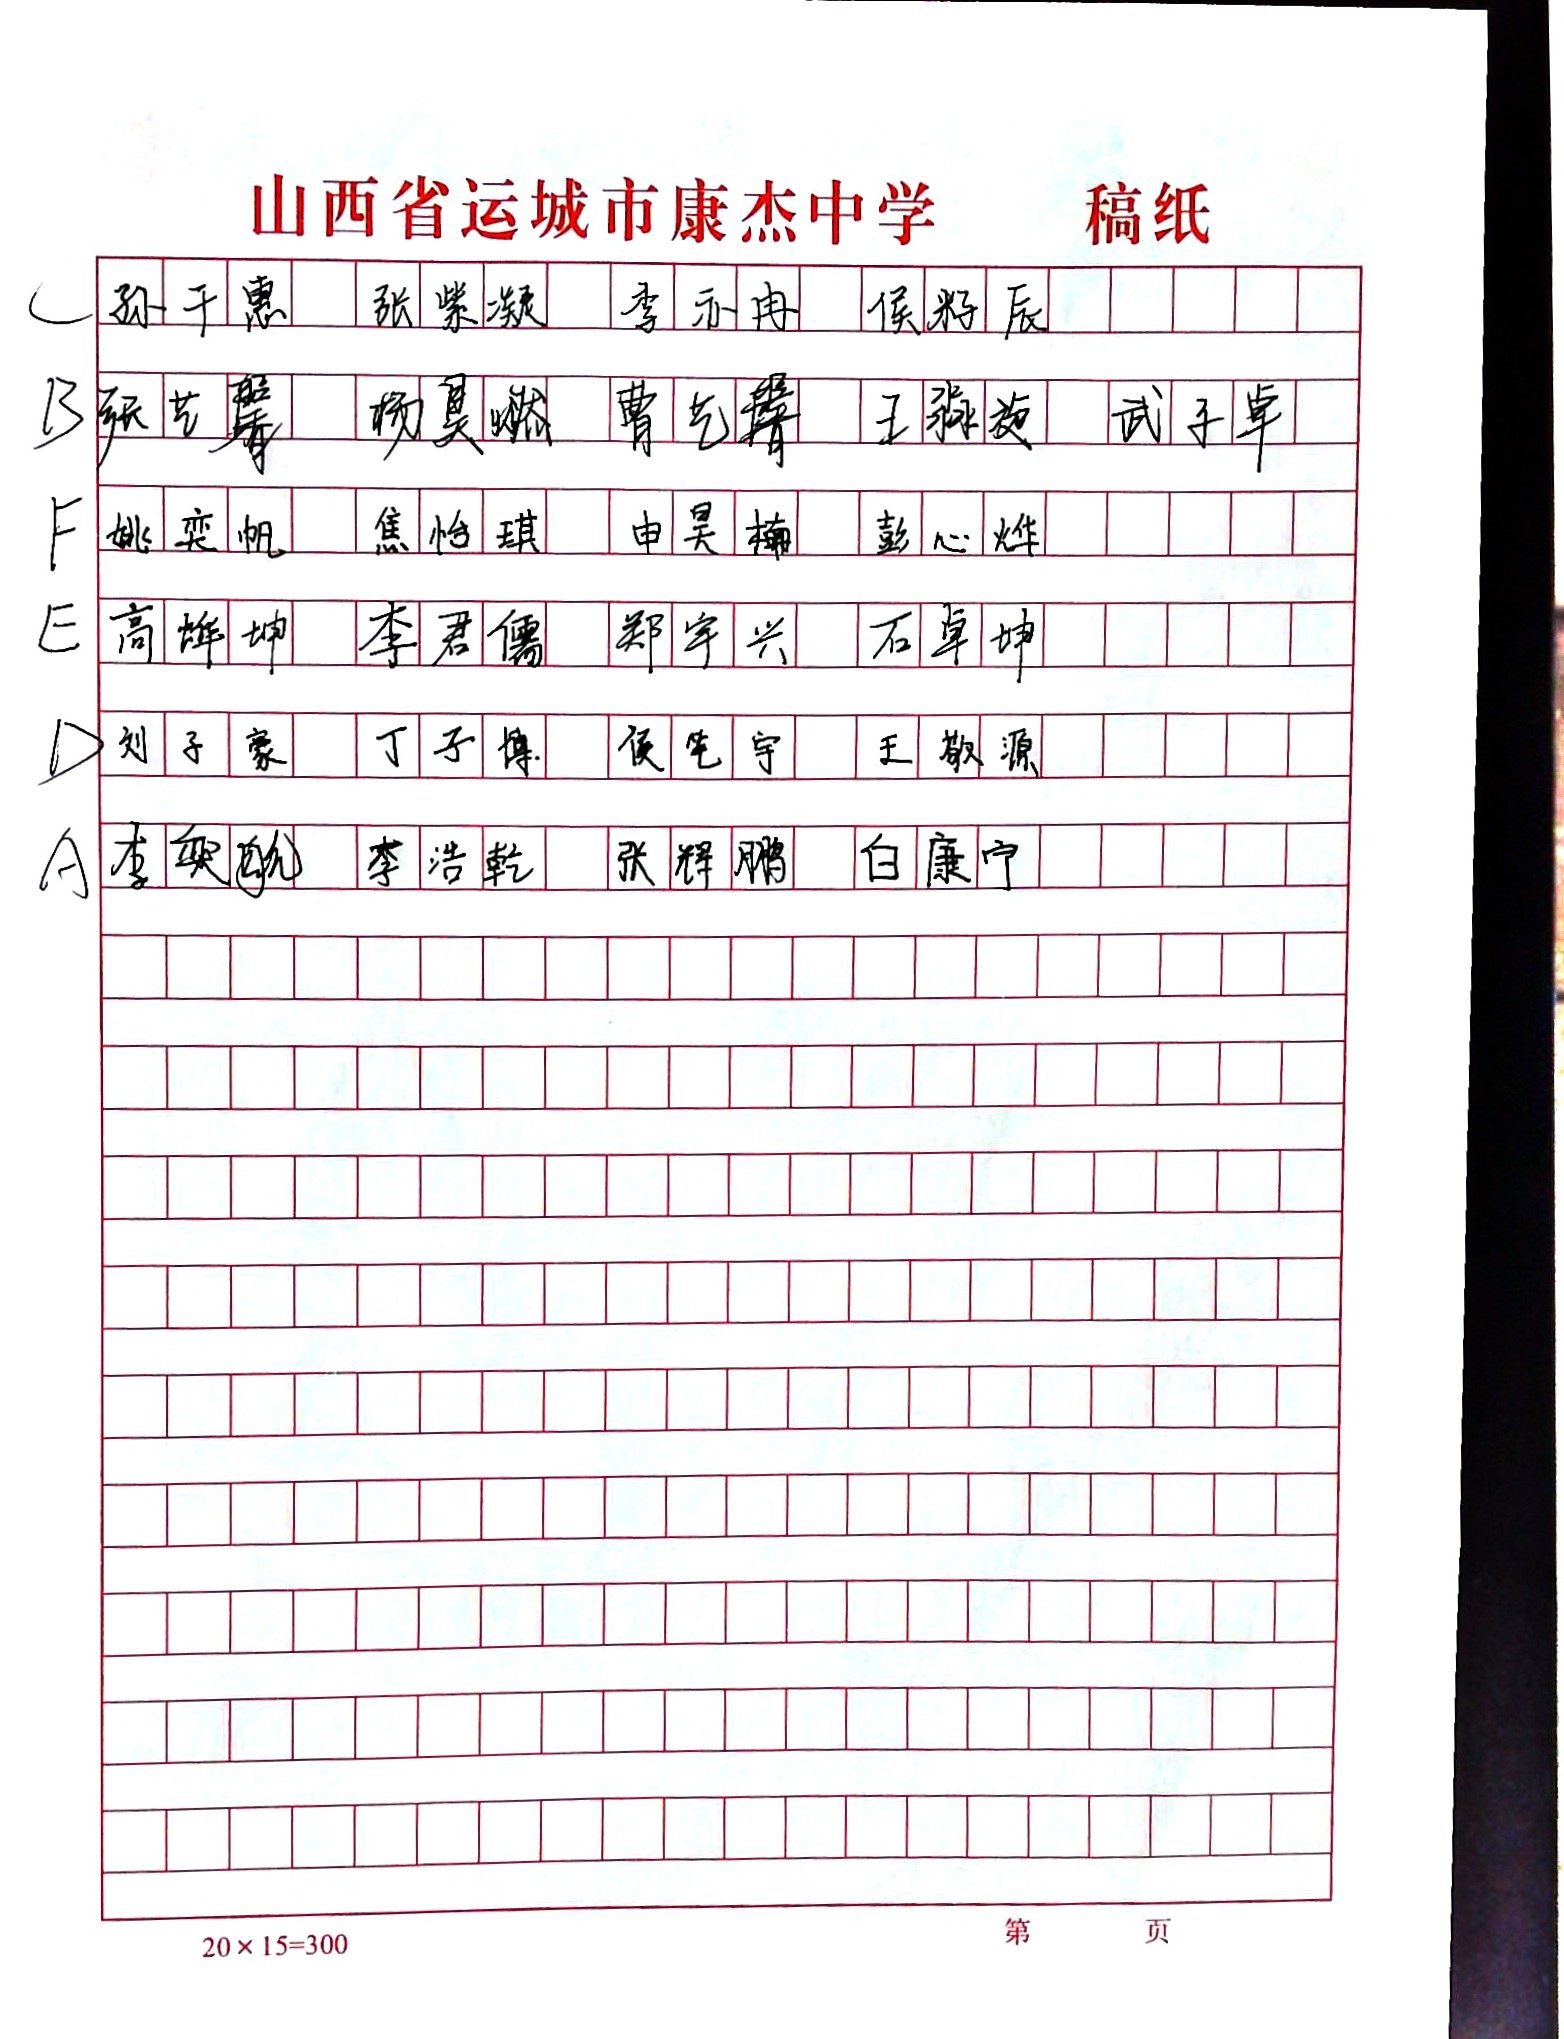 山西省运城市康杰中学 稿纸
C 孙于惠 张紫凝 李亦冉 侯籽辰
B 张艺馨 杨昊燃 曹艺馨 王淼旋 武子卓
F 姚奕帆 焦怡琪 申昊楠 彭心烨
E 高烨坤 李君儒 郑宇兴 石卓坤
D 刘子豪 丁子博 侯宇 王敬源
A 李奕 李浩乾 张辉鹏 白康宁
20×15=300 第 页